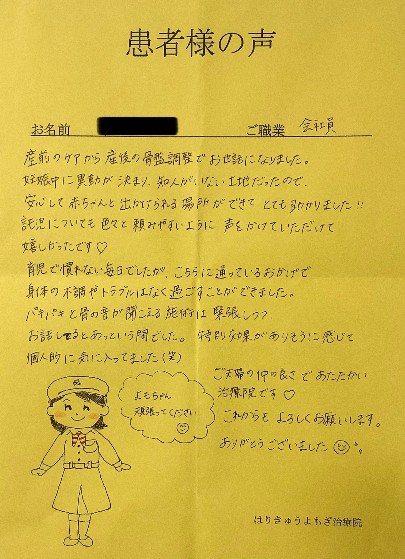 患者様の声
お名前 ご職業 会社員
産前のケアから産後の骨盤調整でお世話になりました。
妊娠中に異動が決まり、知人がいない土地だったので、
安心して赤ちゃんと出かけられる場所ができてとても助かりました!!
託児についても色々と頼みやすいように声をかけていただけて
嬉しかったです♡
育児で慣れない毎日でしたが、こちらに通っているおかげで
身体の不調やトラブルはなく過ごすことができました。
バキバキと骨の音が聞こえる施術は緊張しつつ
お話してるとあっという間でした。特別効果がありそうに感じて
個人的に気に入ってました(笑)
ご夫婦の仲の良さであたたかい
治療院です♡
これからもよろしくお願いします。
ありがとうございました
よもちゃん
頑張ってください
はりきゅうよもぎ治療院